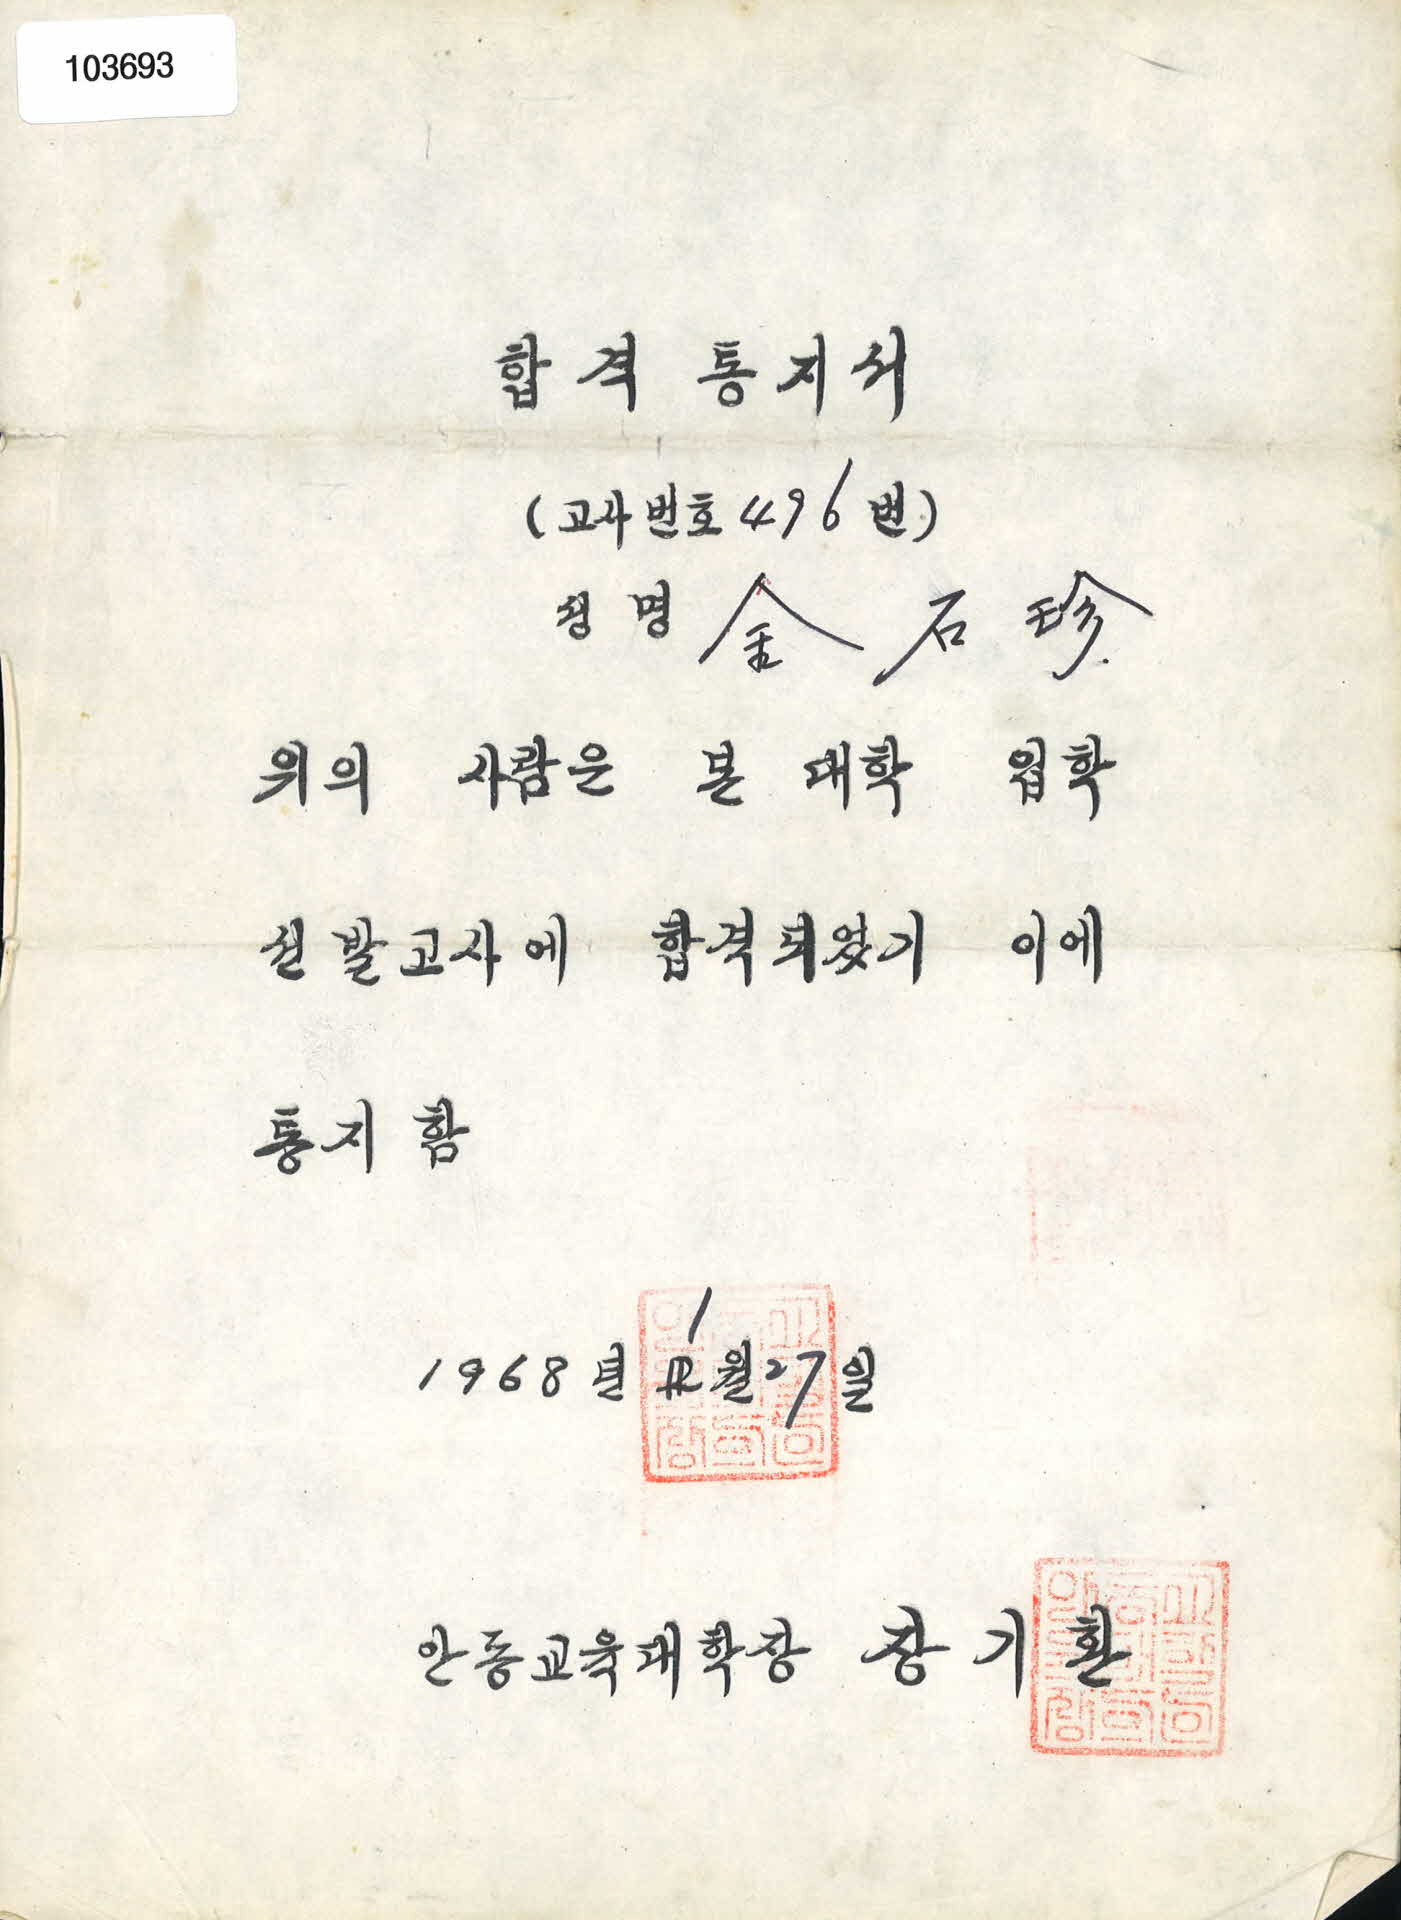 103693
합격 통지서
(고사번호 496 번)
성명 金石珍
위의 사람은 본 대학 입학
선발고사에 합격되었기 이에
통지함
1968년 1월 27일
안동교육대학장 장기환